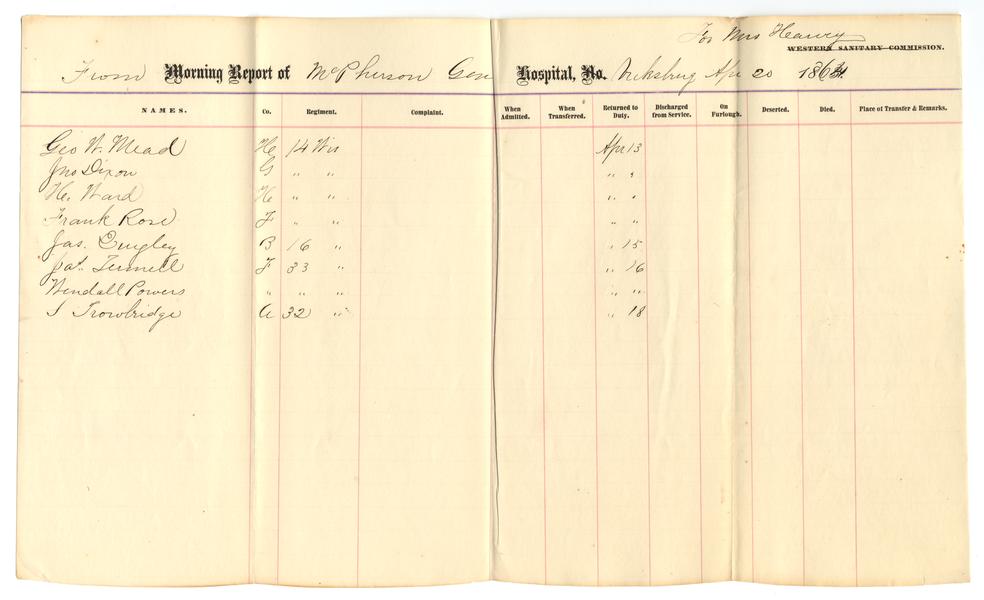 For Mrs Hearvy
WESTERN SANITARY COMMISSION.
From Morning Report of McPherson Gen Hospital, No. Vicksburg Apr 20 1864
NAMES. Co. Regiment. Complaint. When Admitted. When Transferred. Returned to Duty. Discharged from Service. On Furlough. Deserted. Died. Place of Transfer & Remarks.
Geo W. Mead H 14 Wis Apr 13
Jno Dixon G " " " "
H. Ward H " " " "
Frank Rose F " " " "
Jas. Quigley B 16 " " 15
F 33 " " 16
Wendall Powers " " " " "
S Trowbridge A 32 " " 18